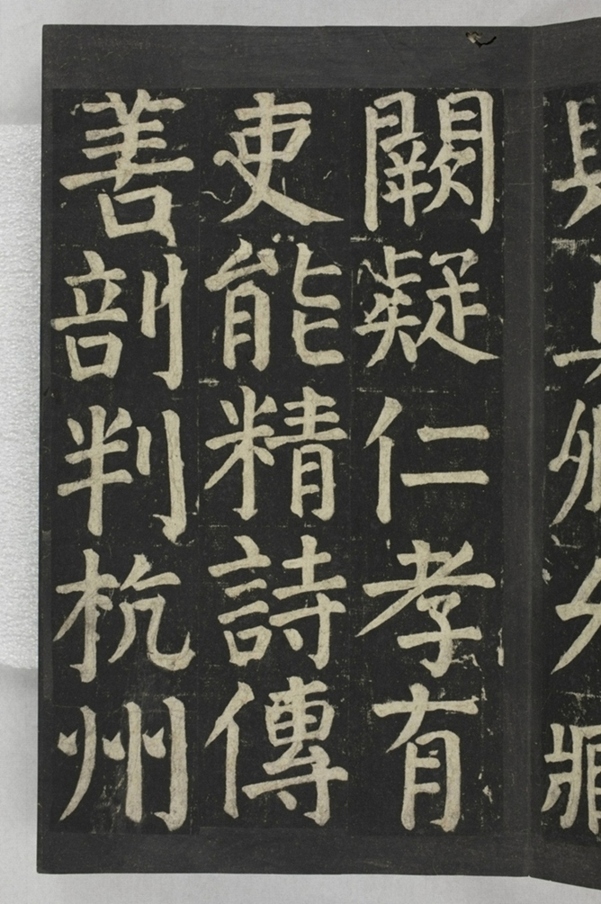 闕疑仁孝有
吏能精詩傳
善剖判杭州